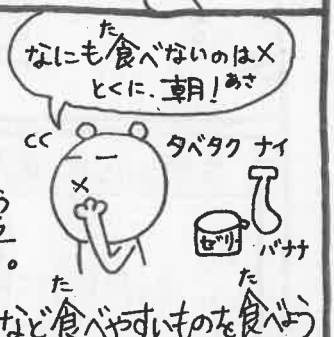 なにも食べないのは×
とくに、朝！
タベタク ナイ
ゼリー
バナナ
う
。
など食べやすいものを食べよう